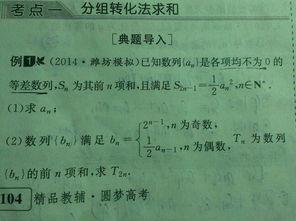 考点一 分组转化法求和
[典题导入]
例1 (2014·潍坊模拟)已知数列{aₙ}是各项均不为0的
等差数列,Sₙ为其前n项和,且满足S₂ₙ₋₁=1/2 aₙ²,n∈N*.
(1)求aₙ;
(2)数列{bₙ}满足bₙ={2ⁿ⁻¹,n为奇数, 1/2 aₙ₋₁,n为偶数, Tₙ为数列
{bₙ}的前n项和,求T₂ₙ.
104 精品教辅·圆梦高考